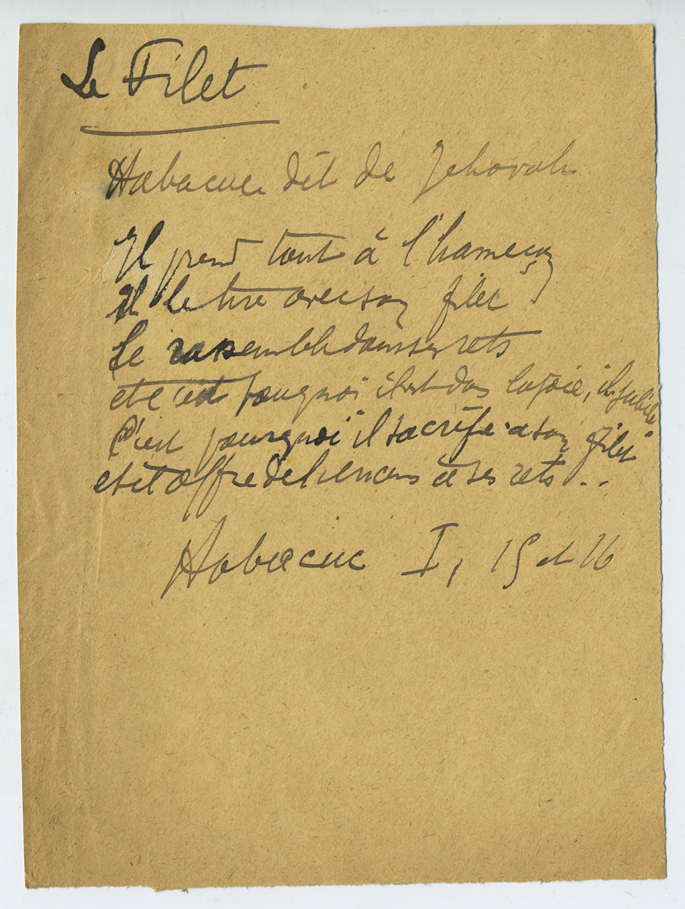 Le Filet
Habacuc dit de Jehovah
Il prend tout à l'hameçon
Il le tire avec son filet
Le rassemble dans ses rets
et c'est pourquoi il est dans la joie, il jubile
C'est pourquoi il sacrifie à son filet
et il offre de l'encens à ses rets...
Habacuc I, 15 et 16